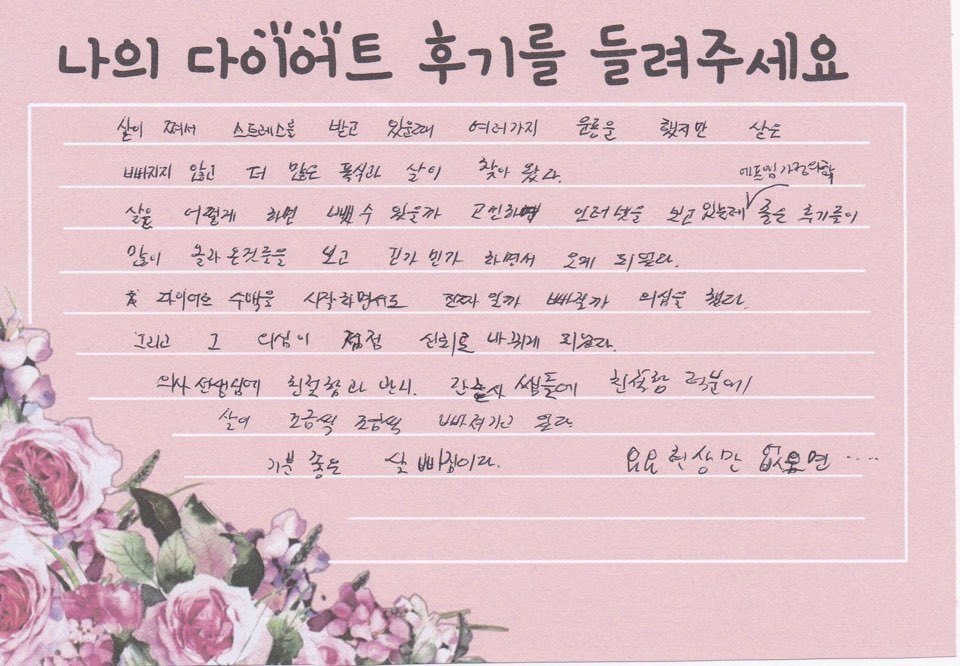 나의 다이어트 후기를 들려주세요
살이 쪄서 스트레스를 받고 있을때 여러가지 운동을 했지만 살은
빠지지 않고 더 많은 폭식과 살이 찾아 왔다.
에프엠가정의학
살을 어떻게 하면 뺄 수 있을까 고민하며 인터넷을 보고 있는데 좋은 후기들이
많이 올라온것들을 보고 긴가 민가 하면서 오게 되었다.
다이어트 수액을 시작하면서도 진짜 될까 빠질까 의심을 했다.
그리고 그 의심이 점점 신뢰로 바뀌게 되었다.
의사 선생님에 친절함과 언니. 간호사 쌤들에 친절함 덕분에
살이 조금씩 조금씩 빠져가고 있다
기분 좋은 살 빠짐이다. 요요 현상만 없으면 ....